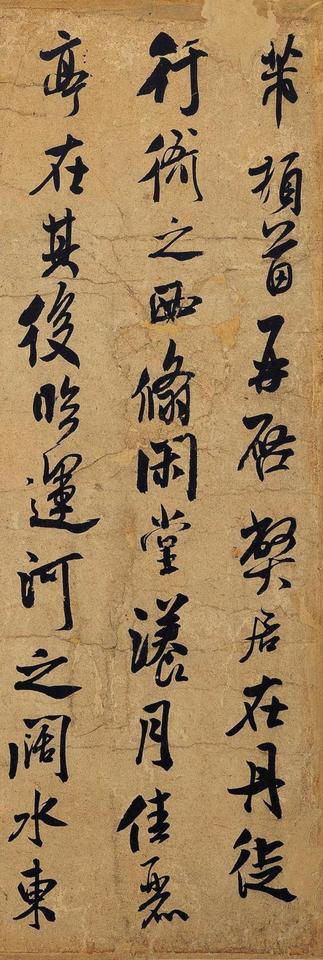 芾頓首再啓弊居在丹徒
行衙之西翛閑堂漾月佳麗
亭在其後臨運河之闊水東